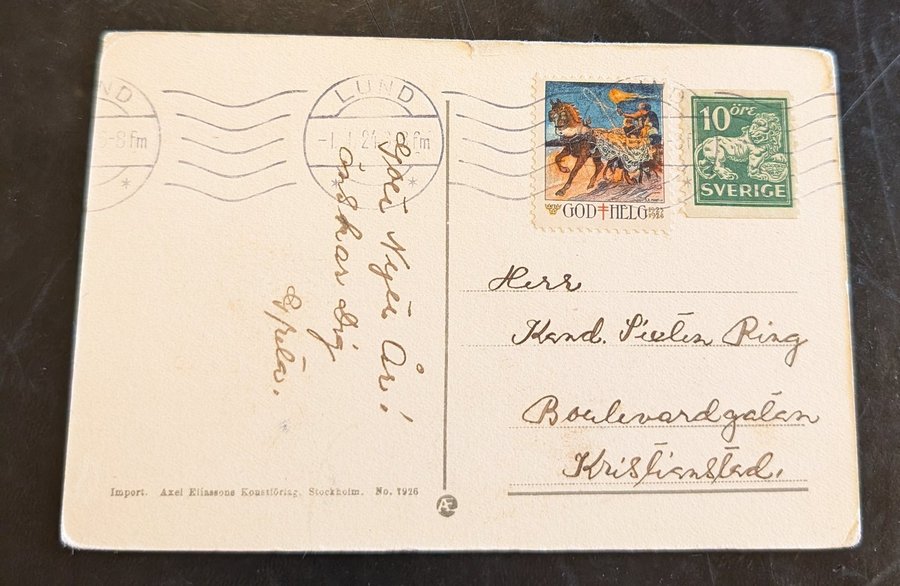 LUND
5-8 Fm
LUND
10 ÖRE
SVERIGE
GOD HELG
Godt Nytt År!
önskar Dig
Greta.
Herr
Kand. Sixten Ring
Boulevardgatan
Kristianstad.
Import. Axel Eliassons Konstförlag, Stockholm. No. 1926
AE